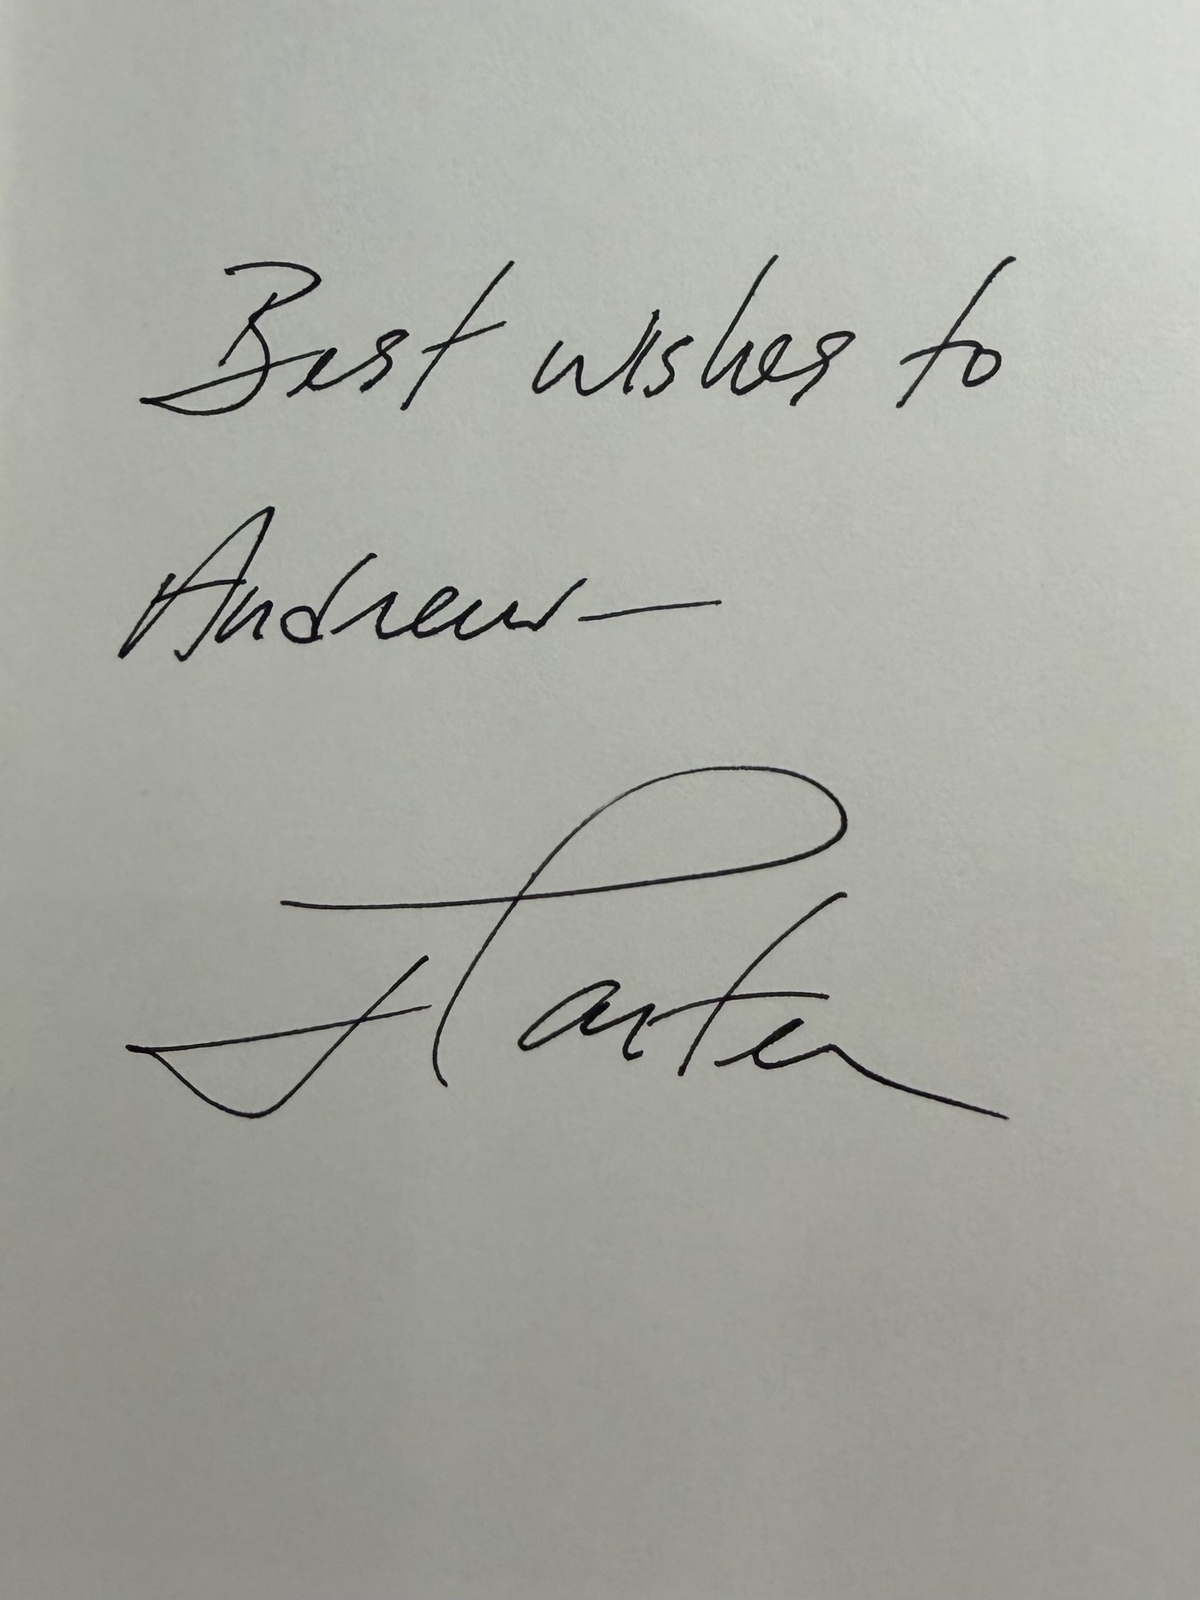 Best wishes to
Andrew—